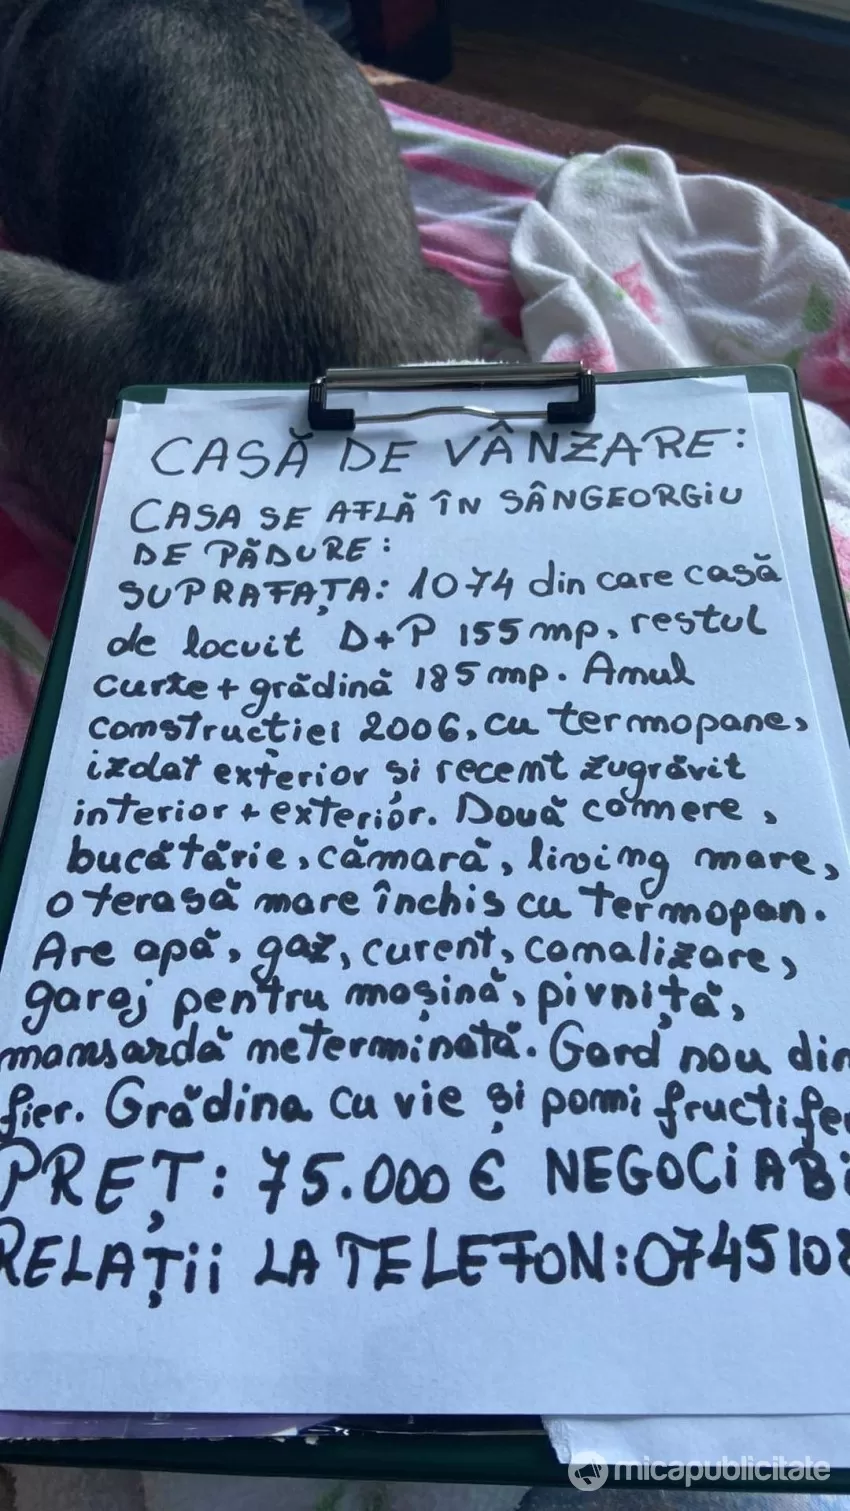 CASĂ DE VÂNZARE:
CASA SE AFLĂ ÎN SÂNGEORGIU
DE PĂDURE:
SUPRAFAȚA: 1074 din care casă
de locuit D+P 155 mp, restul
curte + grădină 185 mp. Anul
construcției 2006, cu termopane,
izolat exterior și recent zugrăvit
interior + exterior. Două camere,
bucătărie, cămară, living mare,
o terasă mare închis cu termopan.
Are apă, gaz, curent, canalizare,
garaj pentru mașină, pivniță,
mansardă neterminată. Gard nou din
fier. Grădina cu vie și pomi fructife
PREȚ: 75.000 € NEGOCIABI
RELAȚII LA TELEFON: 0745108
micapublicitate